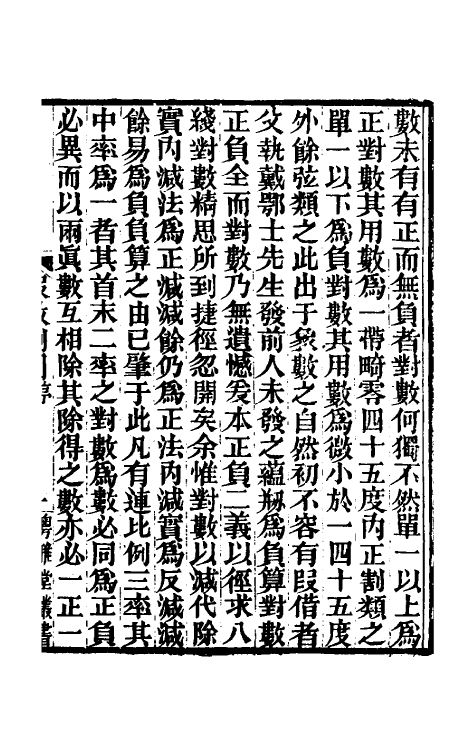 數未有有正而無負者對數何獨不然單一以上爲
正對數其用數爲一帶畸零四十五度內正割類之
單一以下爲負對數其用數爲微小於一四十五度
外餘弦類之此出于象數之自然初不容有叚借者
父執戴鄂士先生發前人未發之蘊剏爲負算對數
正負全而對數乃無遺憾爰本正負二義以徑求八
綫對數精思所到捷徑忽開矣余惟對數以減代除
實內減法爲正減減餘仍爲正法內減實爲反減減
餘易爲負負算之由已肇于此凡有連比例三率其
中率爲一者其首末二率之對數爲數必同爲正負
必異而以兩眞數互相除其除得之數亦必一正一
粵雅堂叢書